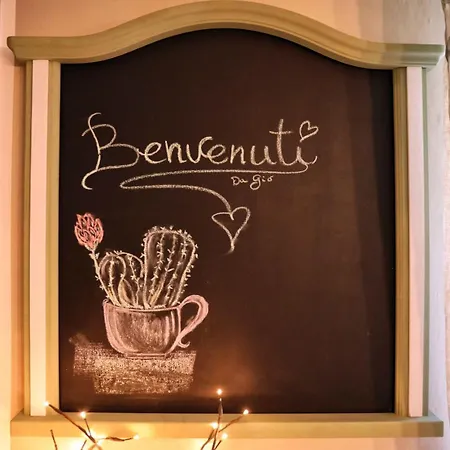 Benvenuti
Da Giò